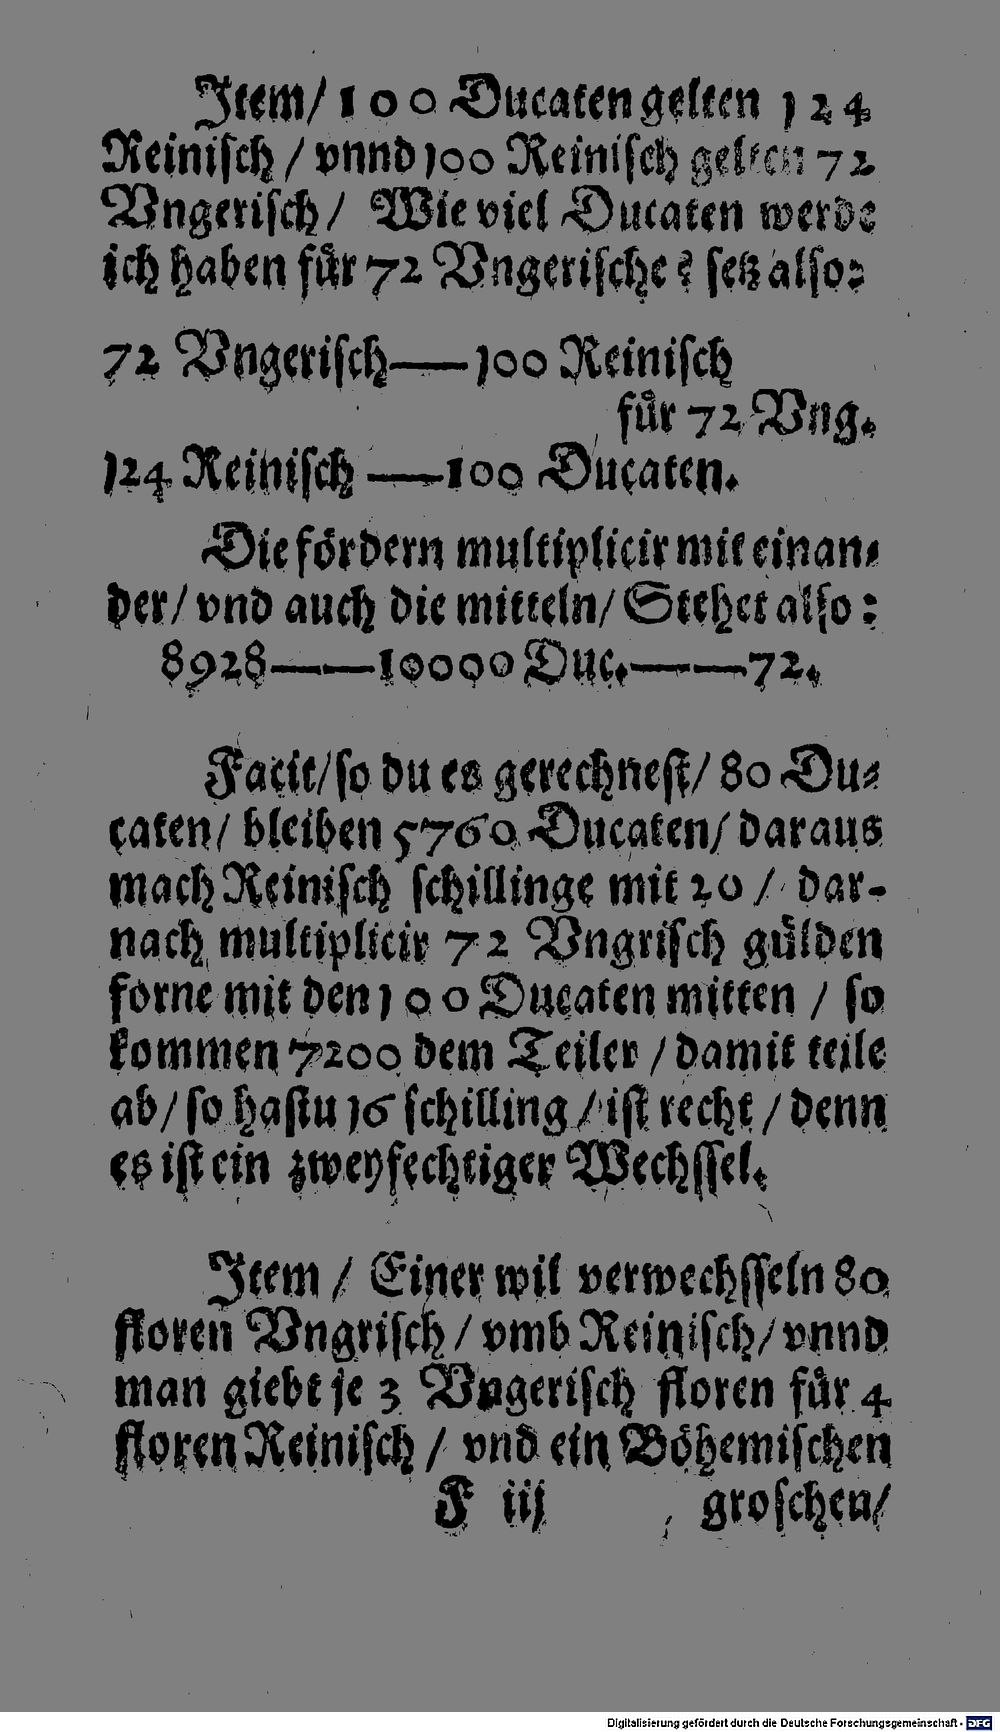 Item/ 100 Ducaten gelten 124
Reinisch / vnnd 100 Reinisch gelten 72
Vngerisch/ Wie viel Ducaten werde
ich haben für 72 Vngerische? setz also:
72 Vngerisch——100 Reinisch
für 72 Vng.
124 Reinisch ——100 Ducaten.
Die fördern multiplicir mit einan⸗
der/ vnd auch die mitteln/ Stehet also:
8928———10000 Duc.———72.
Facit/ so du es gerechnest/ 80 Du⸗
caten/ bleiben 5760 Ducaten/ daraus
mach Reinisch schillinge mit 20 / dar-
nach multiplicir 72 Vngrisch gülden
forne mit den 100 Ducaten mitten / so
kommen 7200 dem Teiler / damit teile
ab/ so hastu 16 schilling / ist recht / denn
es ist ein zweyfechtiger Wechssel.
Item / Einer wil verwechsseln 80
floren Vngrisch / vmb Reinisch/ vnnd
man giebt je 3 Vngerisch floren für 4
floren Reinisch / vnd ein Böhemischen
F iij groschen/
Digitalisierung gefördert durch die Deutsche Forschungsgemeinschaft - DFG